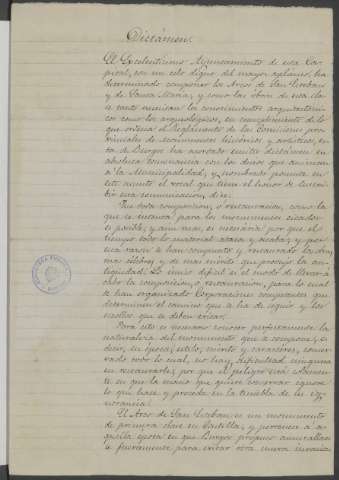 Dictámen.
El Excelentísimo Ayuntamiento de esta Ca-
pital, con un celo digno del mayor aplauso, ha
determinado componer los Arcos de San Esteban
y de Santa María, y como las obras de esta cla-
se tanto necesitan los conocimientos arquitectóni-
cos como los arqueológicos, en cumplimiento de lo
que ordena el Reglamento de las Comisiones pro-
vinciales de monumentos históricos y artísticos, es-
ta de Burgos ha acordado emitir dictámen en
absoluta consonancia con los deseos que animan
á la Municipalidad, y nombrado ponente en
este asunto el vocal que tiene el honor de suscri-
bir esta comunicacion, dice:
Que toda composicion, ó restauracion, como la
que se intenta para los monumentos citados
es posible, y aun mas, es necesaria por que el
tiempo todo lo material ataca y acaba, y por
esta razon se han compuesto y restaurado las obras
mas célebres y de mas mérito que produjo la an-
tigüedad. Lo único dificil es el modo de llevar á
cabo la composicion, ó restauracion, para lo cual
se han organizado Corporaciones competentes que
determinen el camino que se ha de seguir y los
escollos que se deben evitar.
Para esto es necesario conocer perfectamente la
naturaleza del monumento que se compone, es
decir, su época, estilo, mérito y caracteres, conser-
vado todo lo cual, no hay dificultad ninguna
en restaurarle, por que el peligro está solamen-
te en que la mano que quiere conservar ignore
lo que hace y proceda en la tiniebla de su ig-
norancia.
El Arco de San Esteban, es un monumento
de primera clase en Castilla, y pertenece á a-
quella época en que Burgos propuso amurallar-
se fuertemente para evitar otra nueva invasion